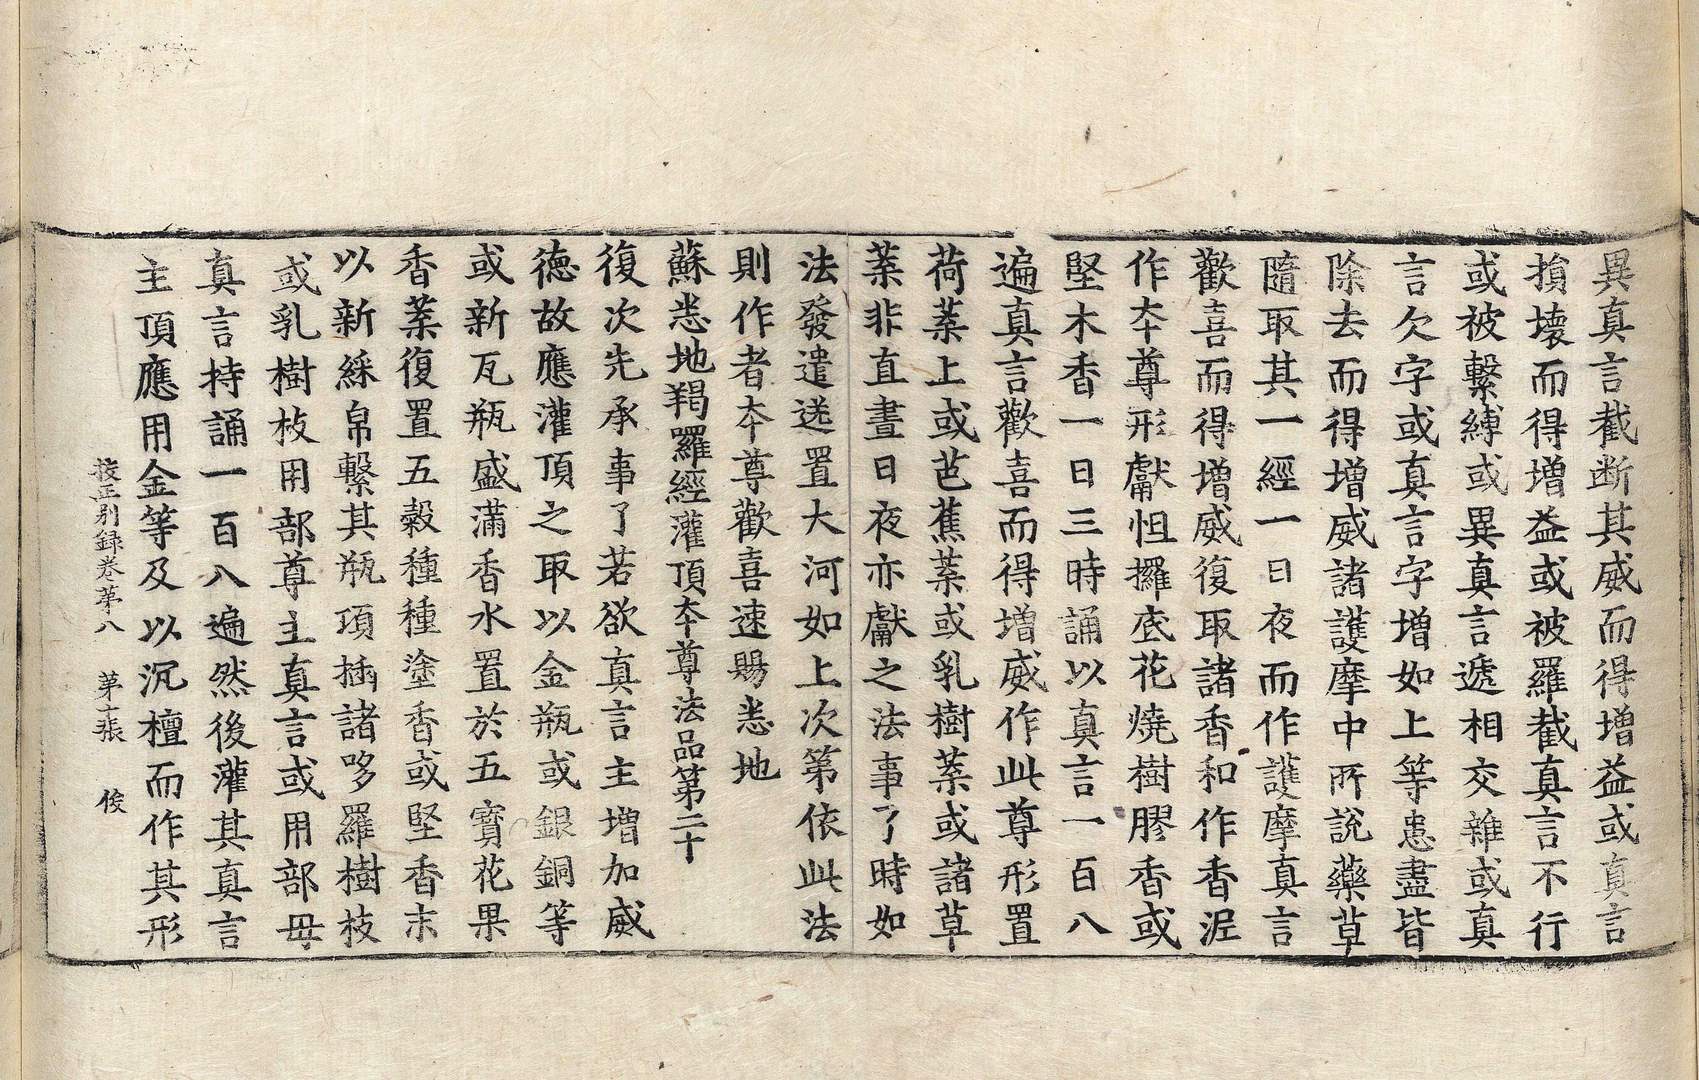 異真言截断其威而得増益或真言
損壊而得増益或被羅截真言不行
或被繫縛或異真言遞相交雜或真
言欠字或真言字増如上等患盡皆
除去而得増威諸護摩中所説藥草
隨取其一經一日夜而作護摩真言
歡喜而得増威復取諸香和作香泥
作夲尊形獻怛攞底花燒樹膠香或
堅木香一日三時誦以真言一百八
遍真言歡喜而得増威作此尊形置
荷葉上或芭蕉葉或乳樹葉或諸草
葉非直晝日夜亦獻之法事了時如
法發遣送置大河如上次第依此法
則作者夲尊歡喜速賜悉地
蘇悉地羯囉經灌頂夲尊法品第二十
復次先承事了若欲真言主増加威
德故應灌頂之取以金瓶或銀銅等
或新瓦瓶盛滿香水置於五寶花果
香葉復置五穀種種塗香或堅香末
以新綵帛繫其瓶項插諸哆羅樹枝
或乳樹枝用部尊主真言或用部母
真言持誦一百八遍然後灌其真言
主頂應用金等及以沉檀而作其形
挍正別録巻苐八　苐十張　俊